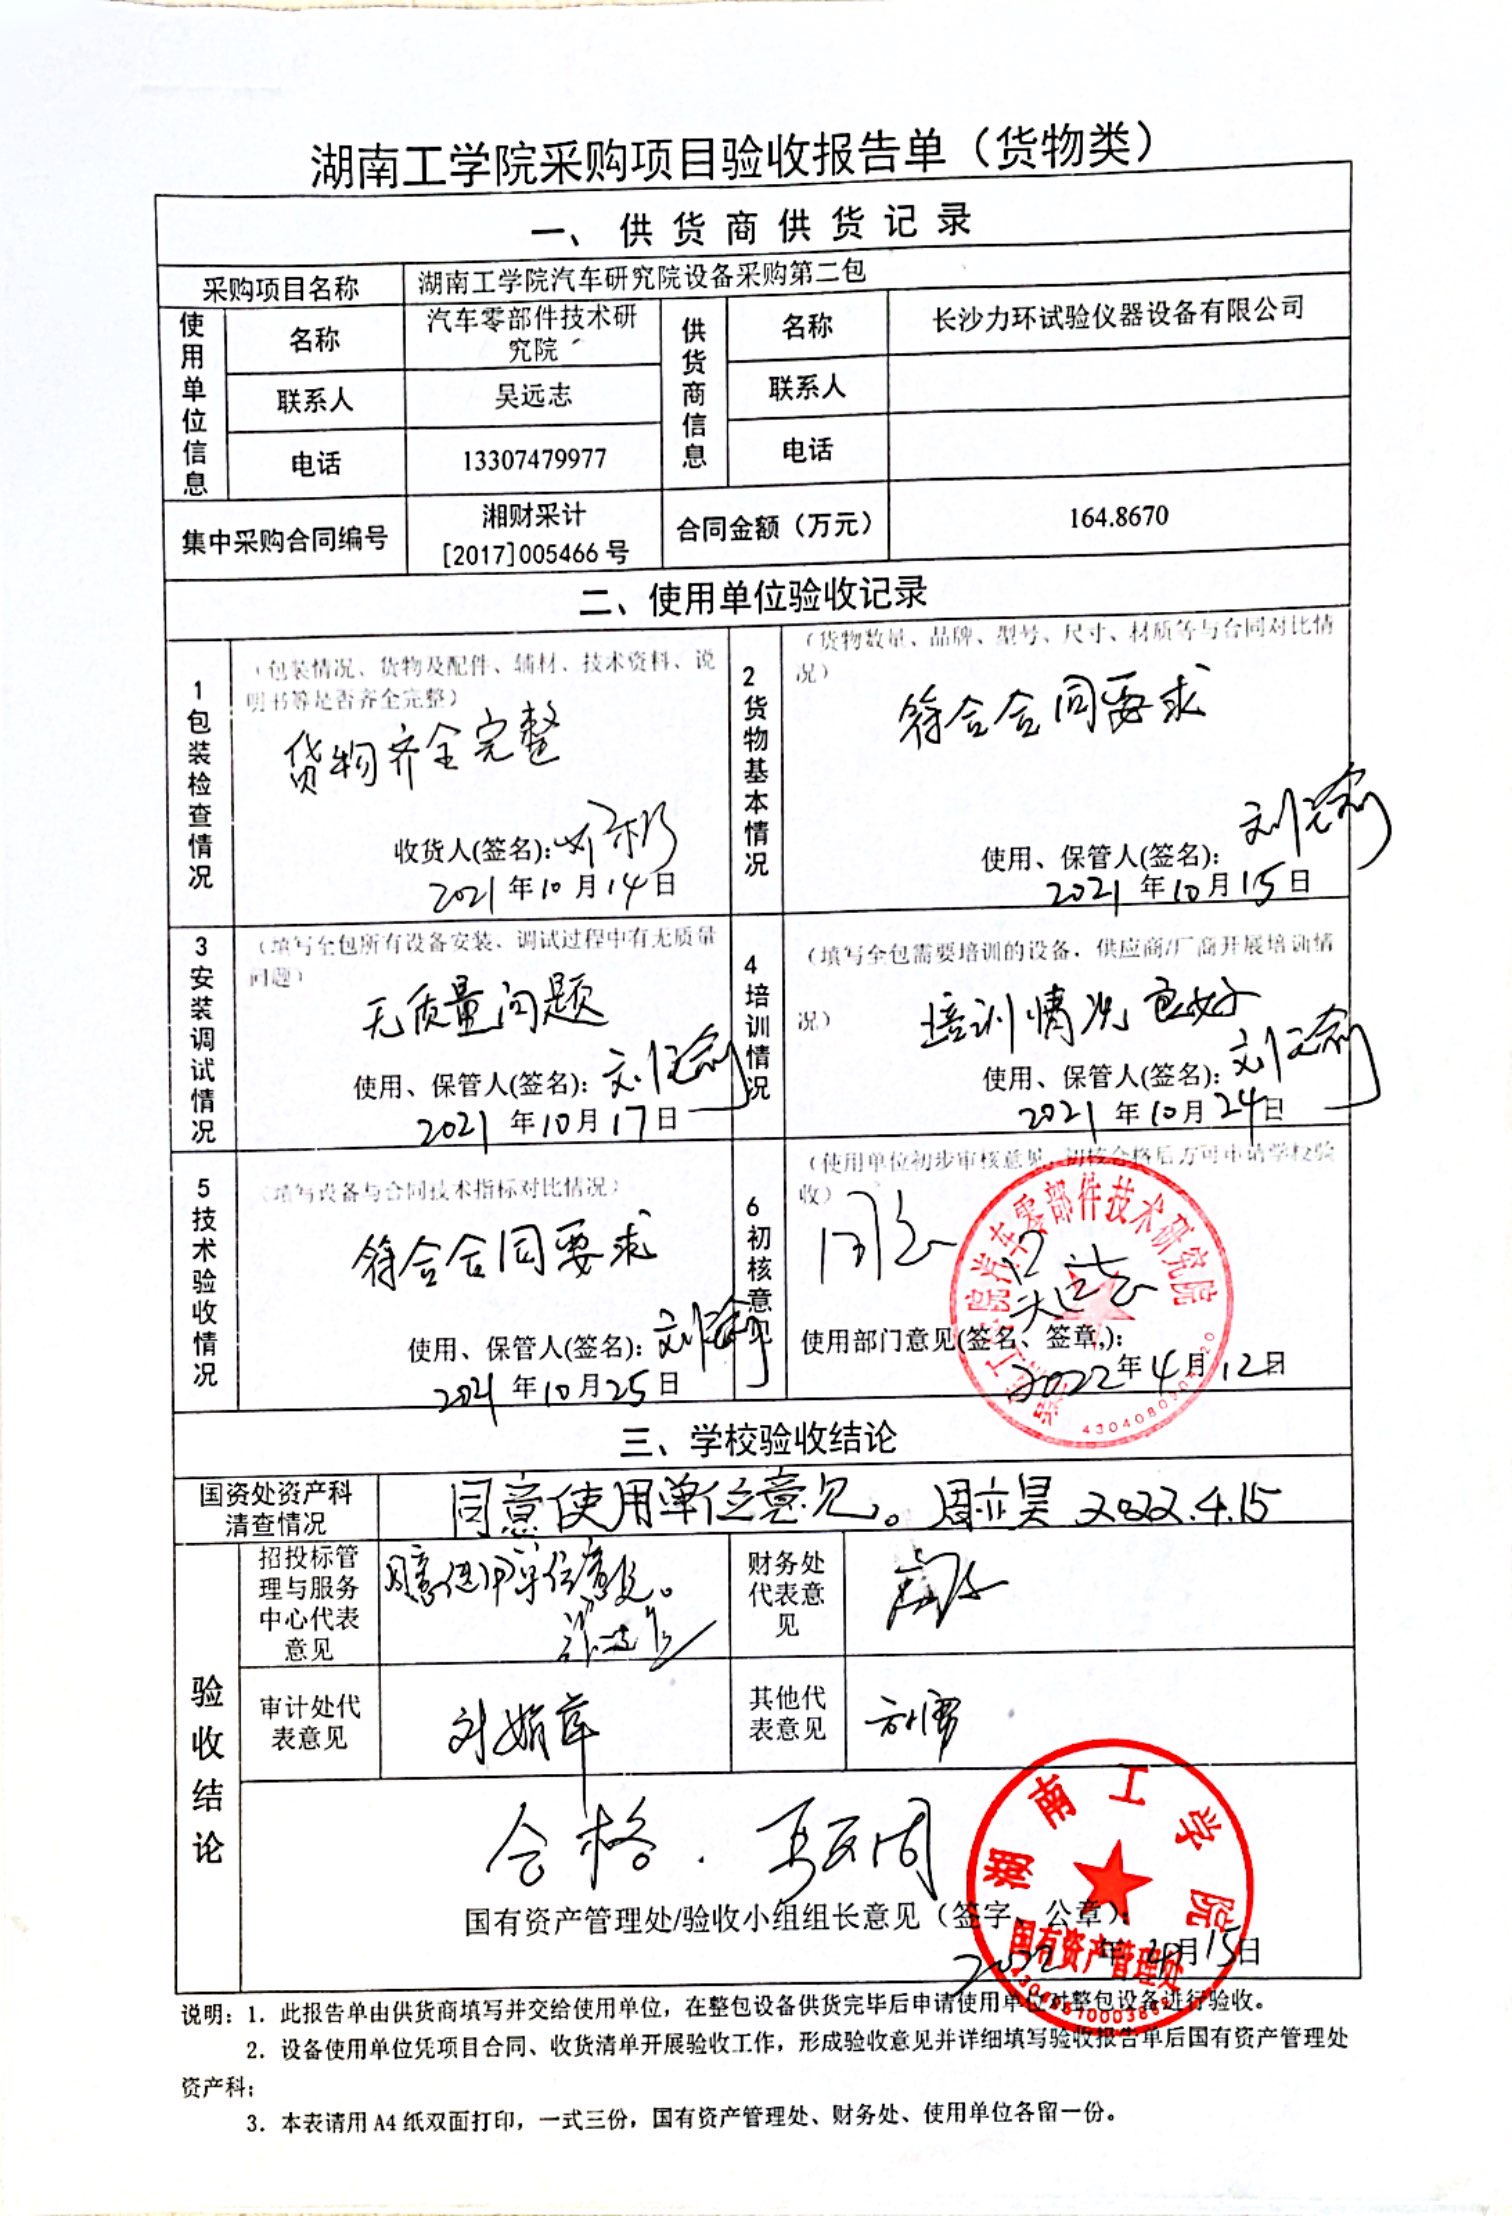 湖南工学院采购项目验收报告单（货物类）
一、供货商供货记录
采购项目名称
湖南工学院汽车研究院设备采购第二包
使用单位信息
名称
汽车零部件技术研
究院
供货商信息
名称
长沙力环试验仪器设备有限公司
联系人
吴远志
联系人
电话
13307479977
电话
集中采购合同编号
湘财采计
[2017]005466号
合同金额（万元）
164.8670
二、使用单位验收记录
1包装检查情况
（包装情况、货物及配件、辅材、技术资料、说
明书等是否齐全完整）
货物齐全完整
收货人(签名):
2021年10月14日
2货物基本情况
（货物数量、品牌、型号、尺寸、材质等与合同对比情
况）
符合合同要求
使用、保管人(签名):
2021年10月15日
3安装调试情况
（填写全包所有设备安装、调试过程中有无质量
问题）
无质量问题
使用、保管人(签名):
2021年10月17日
4培训情况
（填写全包需要培训的设备，供应商/厂商开展培训情
况）
培训情况良好
使用、保管人(签名):
2021年10月24日
5技术验收情况
（填写设备与合同技术指标对比情况）
符合合同要求
使用、保管人(签名):
2021年10月25日
6初核意见
（使用单位初步审核意见，初核合格后方可申请学校验
收）
同意
吴远志
使用部门意见(签名、签章,):
2022年4月12日
工学院汽车零部件技术研究院
三、学校验收结论
国资处资产科
清查情况
同意使用单位意见。周亚昊 2022.4.15
验收结论
招投标管
理与服务
中心代表
意见
同意使用单位意见。
财务处
代表意
见
审计处代
表意见
刘娟萍
其他代
表意见
合格.
国有资产管理处/验收小组组长意见（签字、公章）:
2022年4月15日
湖南工学院
国有资产管理处
说明：1．此报告单由供货商填写并交给使用单位，在整包设备供货完毕后申请使用单位对整包设备进行验收。
2．设备使用单位凭项目合同、收货清单开展验收工作，形成验收意见并详细填写验收报告单后国有资产管理处
资产科；
3．本表请用A4纸双面打印，一式三份，国有资产管理处、财务处、使用单位各留一份。